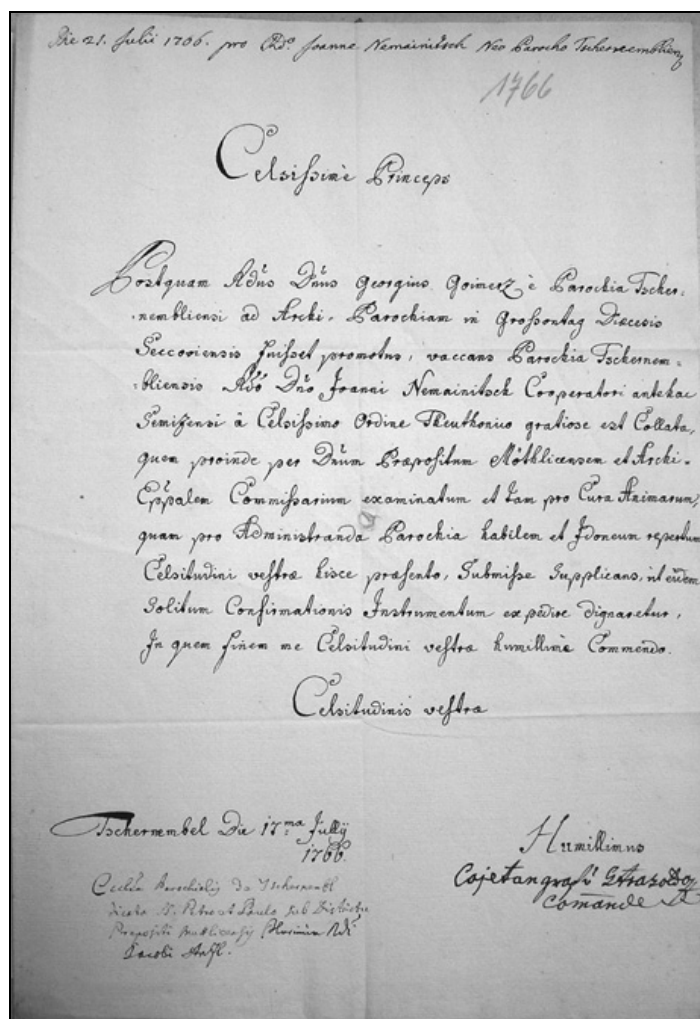 Die 21. Julii 1766. pro Rdo. Joanne Nemainitsch Neo Parocho Tschernemblien
1766
Celsissime Princeps
Postquam Rdus Dnus Georgius Goimerz è Parochia Tscher-
nembliensi ad Archi-Parochiam in Grossontag Diœcesis
Seccoviensis fuisset promotus, vaccans Parochia Tschernem-
bliensis Rdo Dno Joanni Nemainitsch Cooperatori antehac
Semizensi à Celsissimo Ordine Theuthonico gratiose est Collata,
quem proinde per Dnum Præpositum Möthlicensem et Archi-
Eppalem Commissarium examinatum et tam pro Cura Animarum,
quam pro Administranda Parochia habilem et Idoneum repertum
Celsitudini vestræ hisce præsento, Submisse Supplicans, ut eidem
Solitum Confirmationis Instrumentum expedire dignaretur,
In quem finem me Celsitudini vestræ humillimè Commendo.
Celsitudinis vestræ
Tschernembel Die 17ma Jullÿ
1766.
Humillimus
Cajetan graf
Comande
Parochialis de Tschernembl
Petro et Paulo sub Districtu
Prepositi
Jacobi